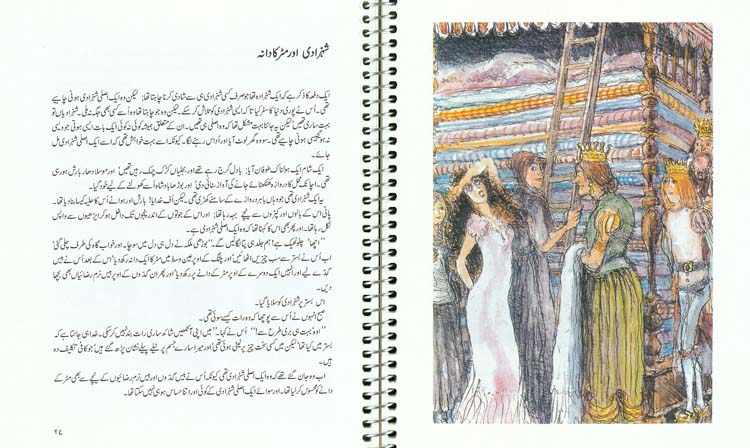 شہزادی اور مٹر کا دانہ
ایک دفعہ کا ذکر ہے کہ ایک شہزادہ تھا جو صرف کسی شہزادی ہی سے شادی کرنا چاہتا تھا؛ لیکن وہ ایک اصلی شہزادی ہونی چاہیے
تھی۔ اُس نے پوری دنیا کا سفر کیا تاکہ ایسی شہزادی کو تلاش کر سکے لیکن وہ جو چاہتا تھا وہ اُسے کسی بھی جگہ نہ ملی۔ شہزادیاں تو
بہت ساری تھیں؛ لیکن یہ جاننا بہت مشکل تھا کہ وہ اصلی ہی تھیں۔ ان کے متعلق ہمیشہ کوئی نہ کوئی ایک بات ایسی ہوتی جو ویسی
نہ ہوتی جیسی ہونی چاہیے تھی۔ سو وہ گھر لوٹ آیا اور اُداس رہنے لگا۔ کیونکہ اسے بہت خواہش تھی کہ اسے ایک اصلی شہزادی مل
جائے۔
ایک شام ایک ہولناک طوفان آیا؛ بادل گرج رہے تھے اور بجلیاں کڑک چمک رہیں تھیں؛ اور موسلادھار بارش ہو رہی
تھی۔ اچانک محل کا دروازہ کھٹکھٹائے جانے کی آواز سنائی دی؛ اور بوڑھا بادشاہ اُسے کھولنے کے لیے خود گیا۔
یہ ایک شہزادی تھی جو وہاں باہر دروازے کے سامنے کھڑی تھی۔ لیکن اُف خدایا! بارش اور ہوا نے اُس کا حلیہ کیسا بنا دیا تھا۔
پانی اُس کے بالوں اور کپڑوں سے نیچے بہہ رہا تھا؛ اور اس کے جوتوں کے اندر پنجوں تک داخل ہو کر ایڑھیوں سے واپس
نکل رہا تھا۔ اور پھر بھی اُس کا کہنا تھا کہ وہ ایک اصلی شہزادی ہی ہے۔
”اچھا“ چلو ٹھیک ہے! ہم جلد ہی پتا لگا لیں گے۔“ بوڑھی ملکہ نے دل ہی دل میں سوچا۔ اور خواب گاہ کی طرف چلی گئی؛
اب اُس نے بستر سے سب چیزیں اٹھائیں اور پلنگ کے اوپر عین وسط میں مٹر کا ایک دانہ رکھ دیا؛ اس کے بعد اُس نے بیس
گدے لیے اور انہیں ایک دوسرے کے اوپر مٹر کے دانے پر رکھ دیا؛ اور پھر ان گدوں کے اوپر بیس نرم رضائیاں بھی بچھا
دیں۔
اس بستر پر شہزادی کو سلایا گیا۔
صبح انہوں نے اُس سے پوچھا کہ وہ رات کیسے سوئی تھی۔
”اوہ بہت ہی بری طرح سے!“ اُس نے کہا۔ ”میں اپنی آنکھیں شاذ ساری رات بند نہیں کر سکی۔ خدا ہی جانتا ہے کہ
بستر میں کیا تھا؛ لیکن میں کسی سخت چیز پر لیٹی ہوئی تھی؛ اور میرا سارے جسم پر نیلے پیلے نشان پڑ گئے ہیں؛ جو کافی تکلیف دہ
ہیں۔
اب وہ جان گئے تھے کہ وہ ایک اصلی شہزادی تھی کیونکہ اُس نے بیس گدوں اور بیس نرم رضائیوں کے نیچے سے بھی مٹر کے
دانے کو محسوس کر لیا تھا۔ اور سوائے ایک اصلی شہزادی کے کوئی اور اتنا حساس ہو ہی نہیں سکتا تھا۔
۲۴